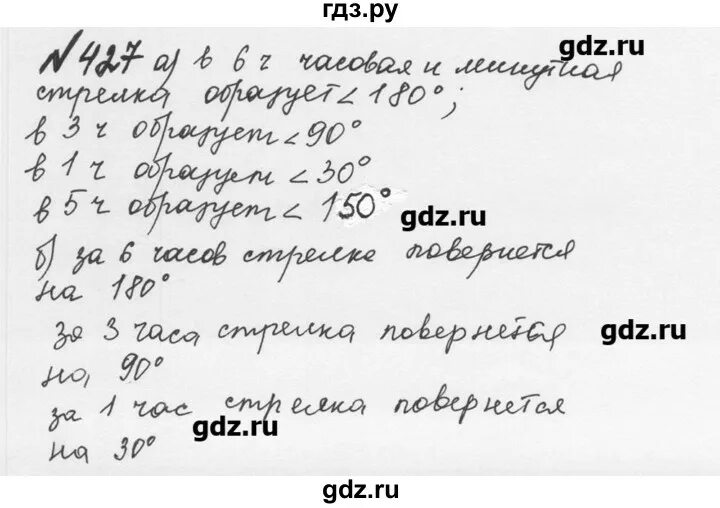 гдз.ру
№427 а) в 6 ч часовая и минутная
стрелка образует < 180°;
в 3 ч образует < 90°
в 1 ч образует < 30°
в 5 ч образует < 150°
gdz.ru
б) за 6 часов стрелка повернется
на 180°
за 3 часа стрелка повернется
gdz.ru
на 90°
за 1 час стрелка повернется
gdz.ru
на 30°
gdz.ru